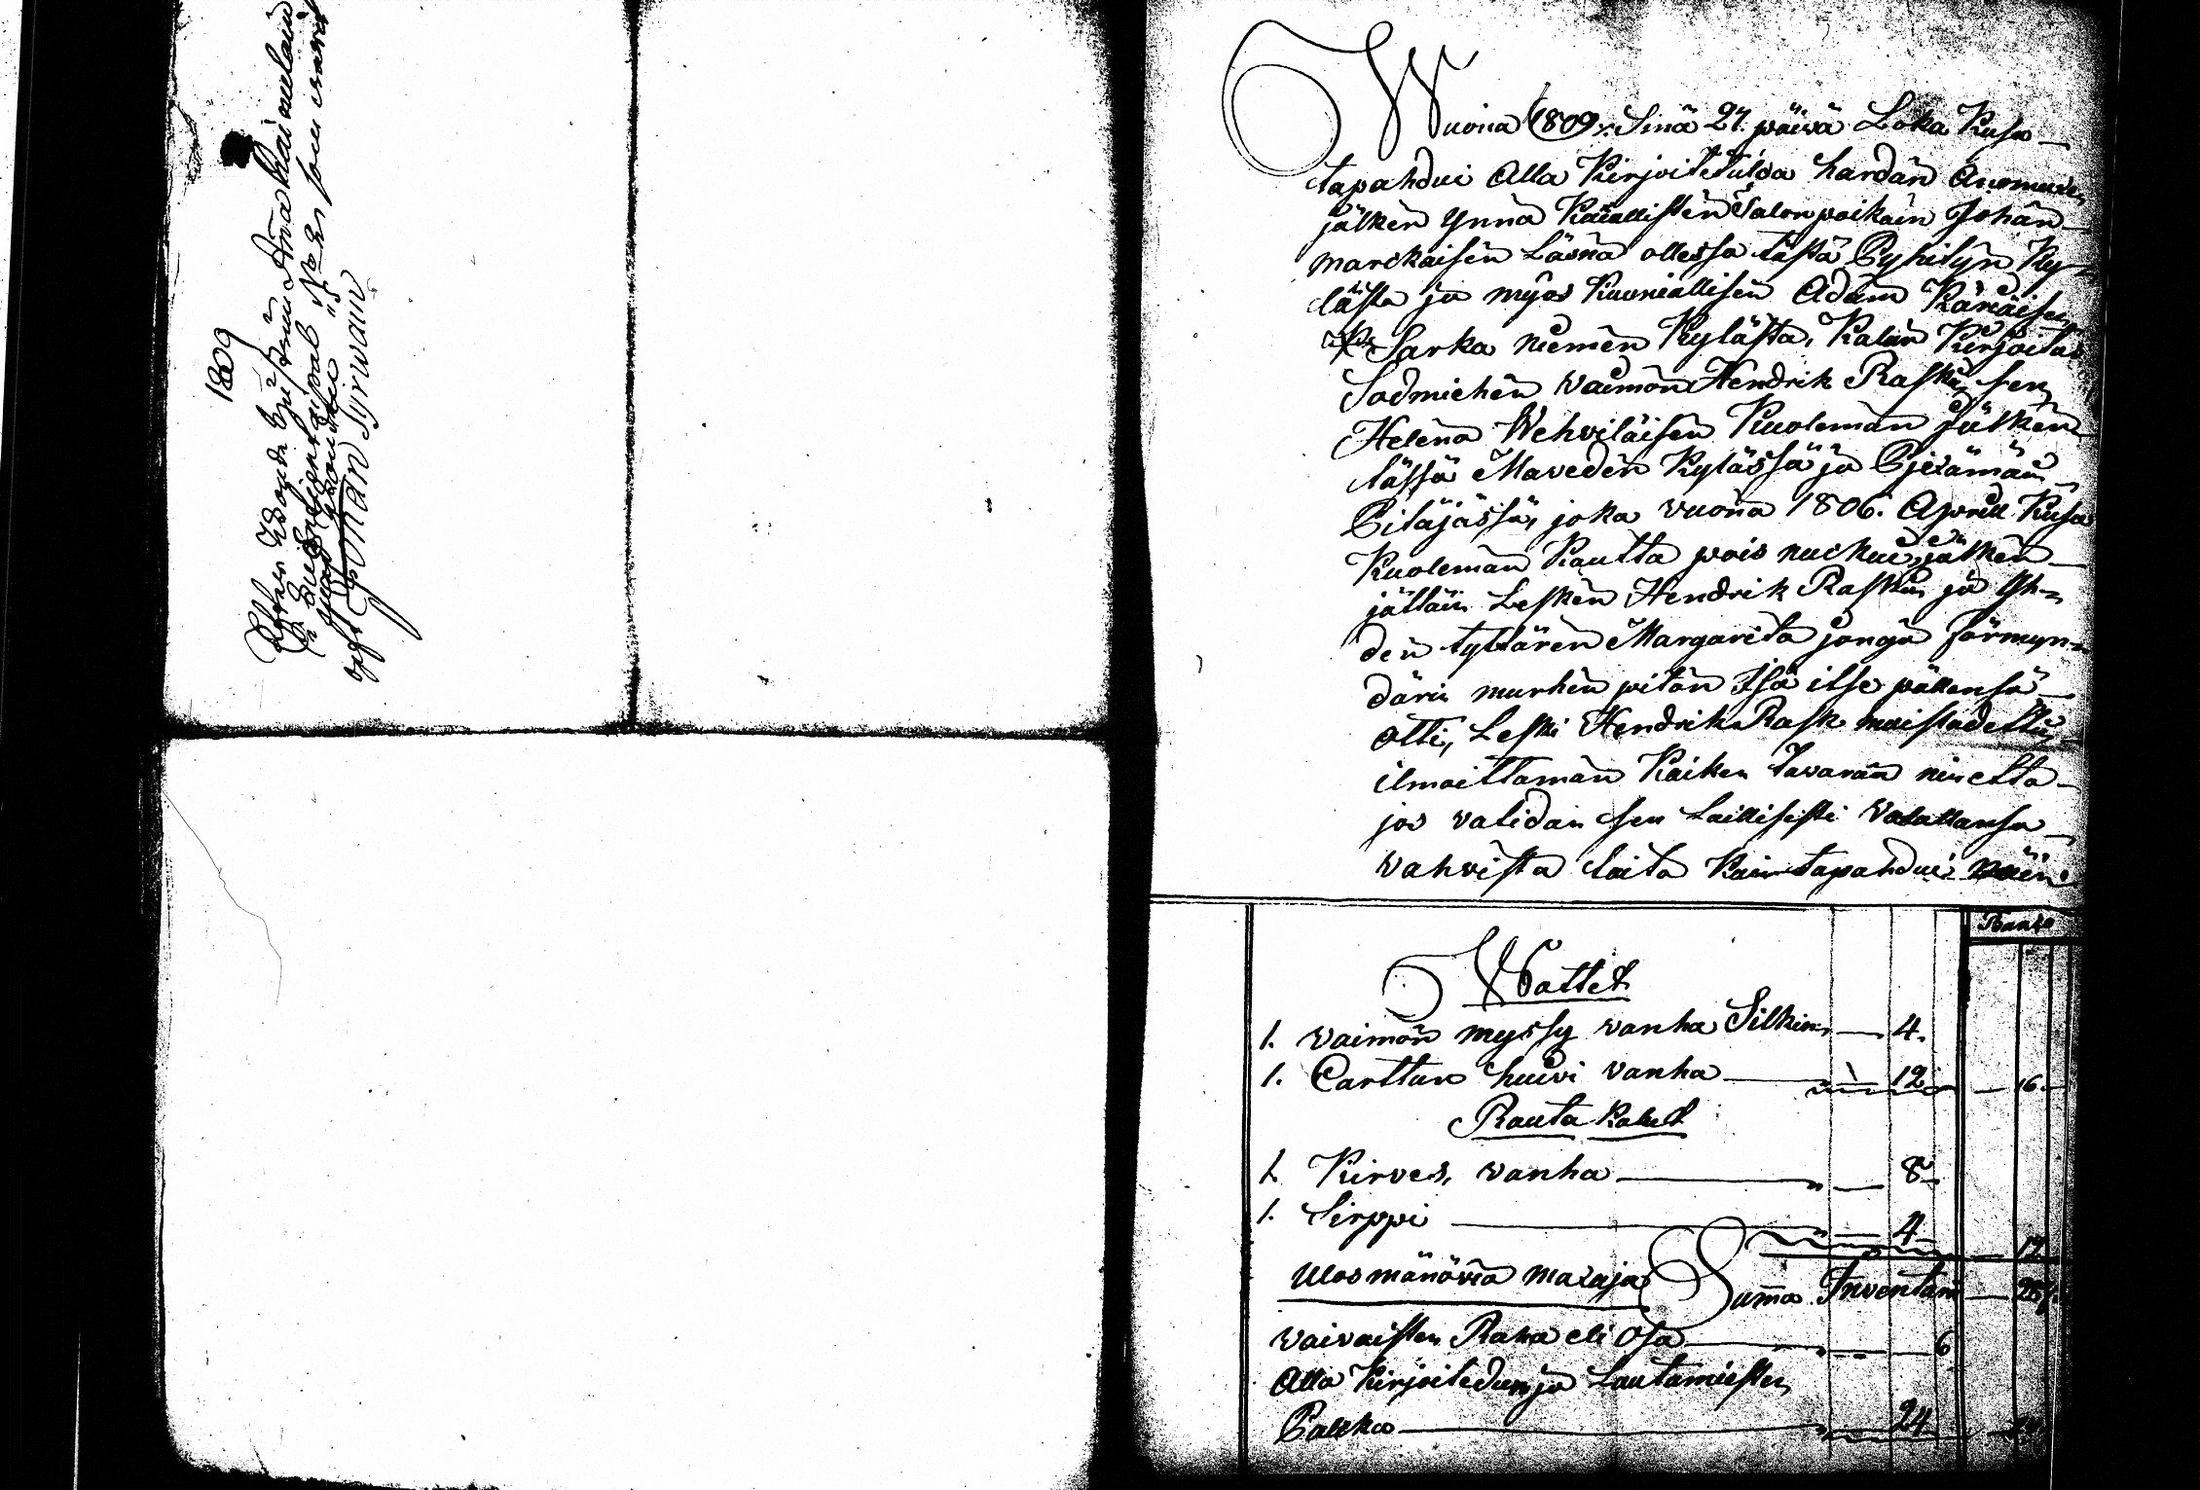 1809
Efter
Johan Tyrwain
Wuona 1809. Sinä 27. päivä Loka Kusa
tapahdui Alla Kirjoitetulda hardan Anomuxen
jälken ynnä Kuniallisen Talonpoikain Johan
Marckaisen Läsnä ollessa tästä Pyhityn Ky-
lästä ja myös Kunniallisen Adam
Sarka niemen Kylästä, Kalun Kirjoitus
Sodmiehen vaimon Hendrik Raskin sen
Helena Wehviläisen Kuoleman Jälken
tässä Maveden Kylässä ja Pjexämän
Pitäjässä, joka vuonna 1806. Aprill Kusa
Kuoleman Kautta pois nuckui, jälken
jättäin Lesken Hendrik Raskin ja Yh-
den tyttären Margareta jonga förmyn-
därin murhen pitän Isä itse pällensä
otti, Leski Hendrik Rask muistadettin
ilmoittaman Kaiken tavaran nin että
jos validan sen Laillisesti Valallansa
vahvista taita Kuin tapahdui näin
Banko
Wattet
1. vaimon myssy vanha Silkin 4.
1. Carttun huivi vanha 12 16.
Rauta Kalut
1. Kirves, vanha 8
1. Sirppi 4 12
Ulosmänöviä maxaja Suma Inventari 28
vaivaisten Raha eli Osa 6
Alla Kirjoitedun ja Lautamiesten
Palkka 24